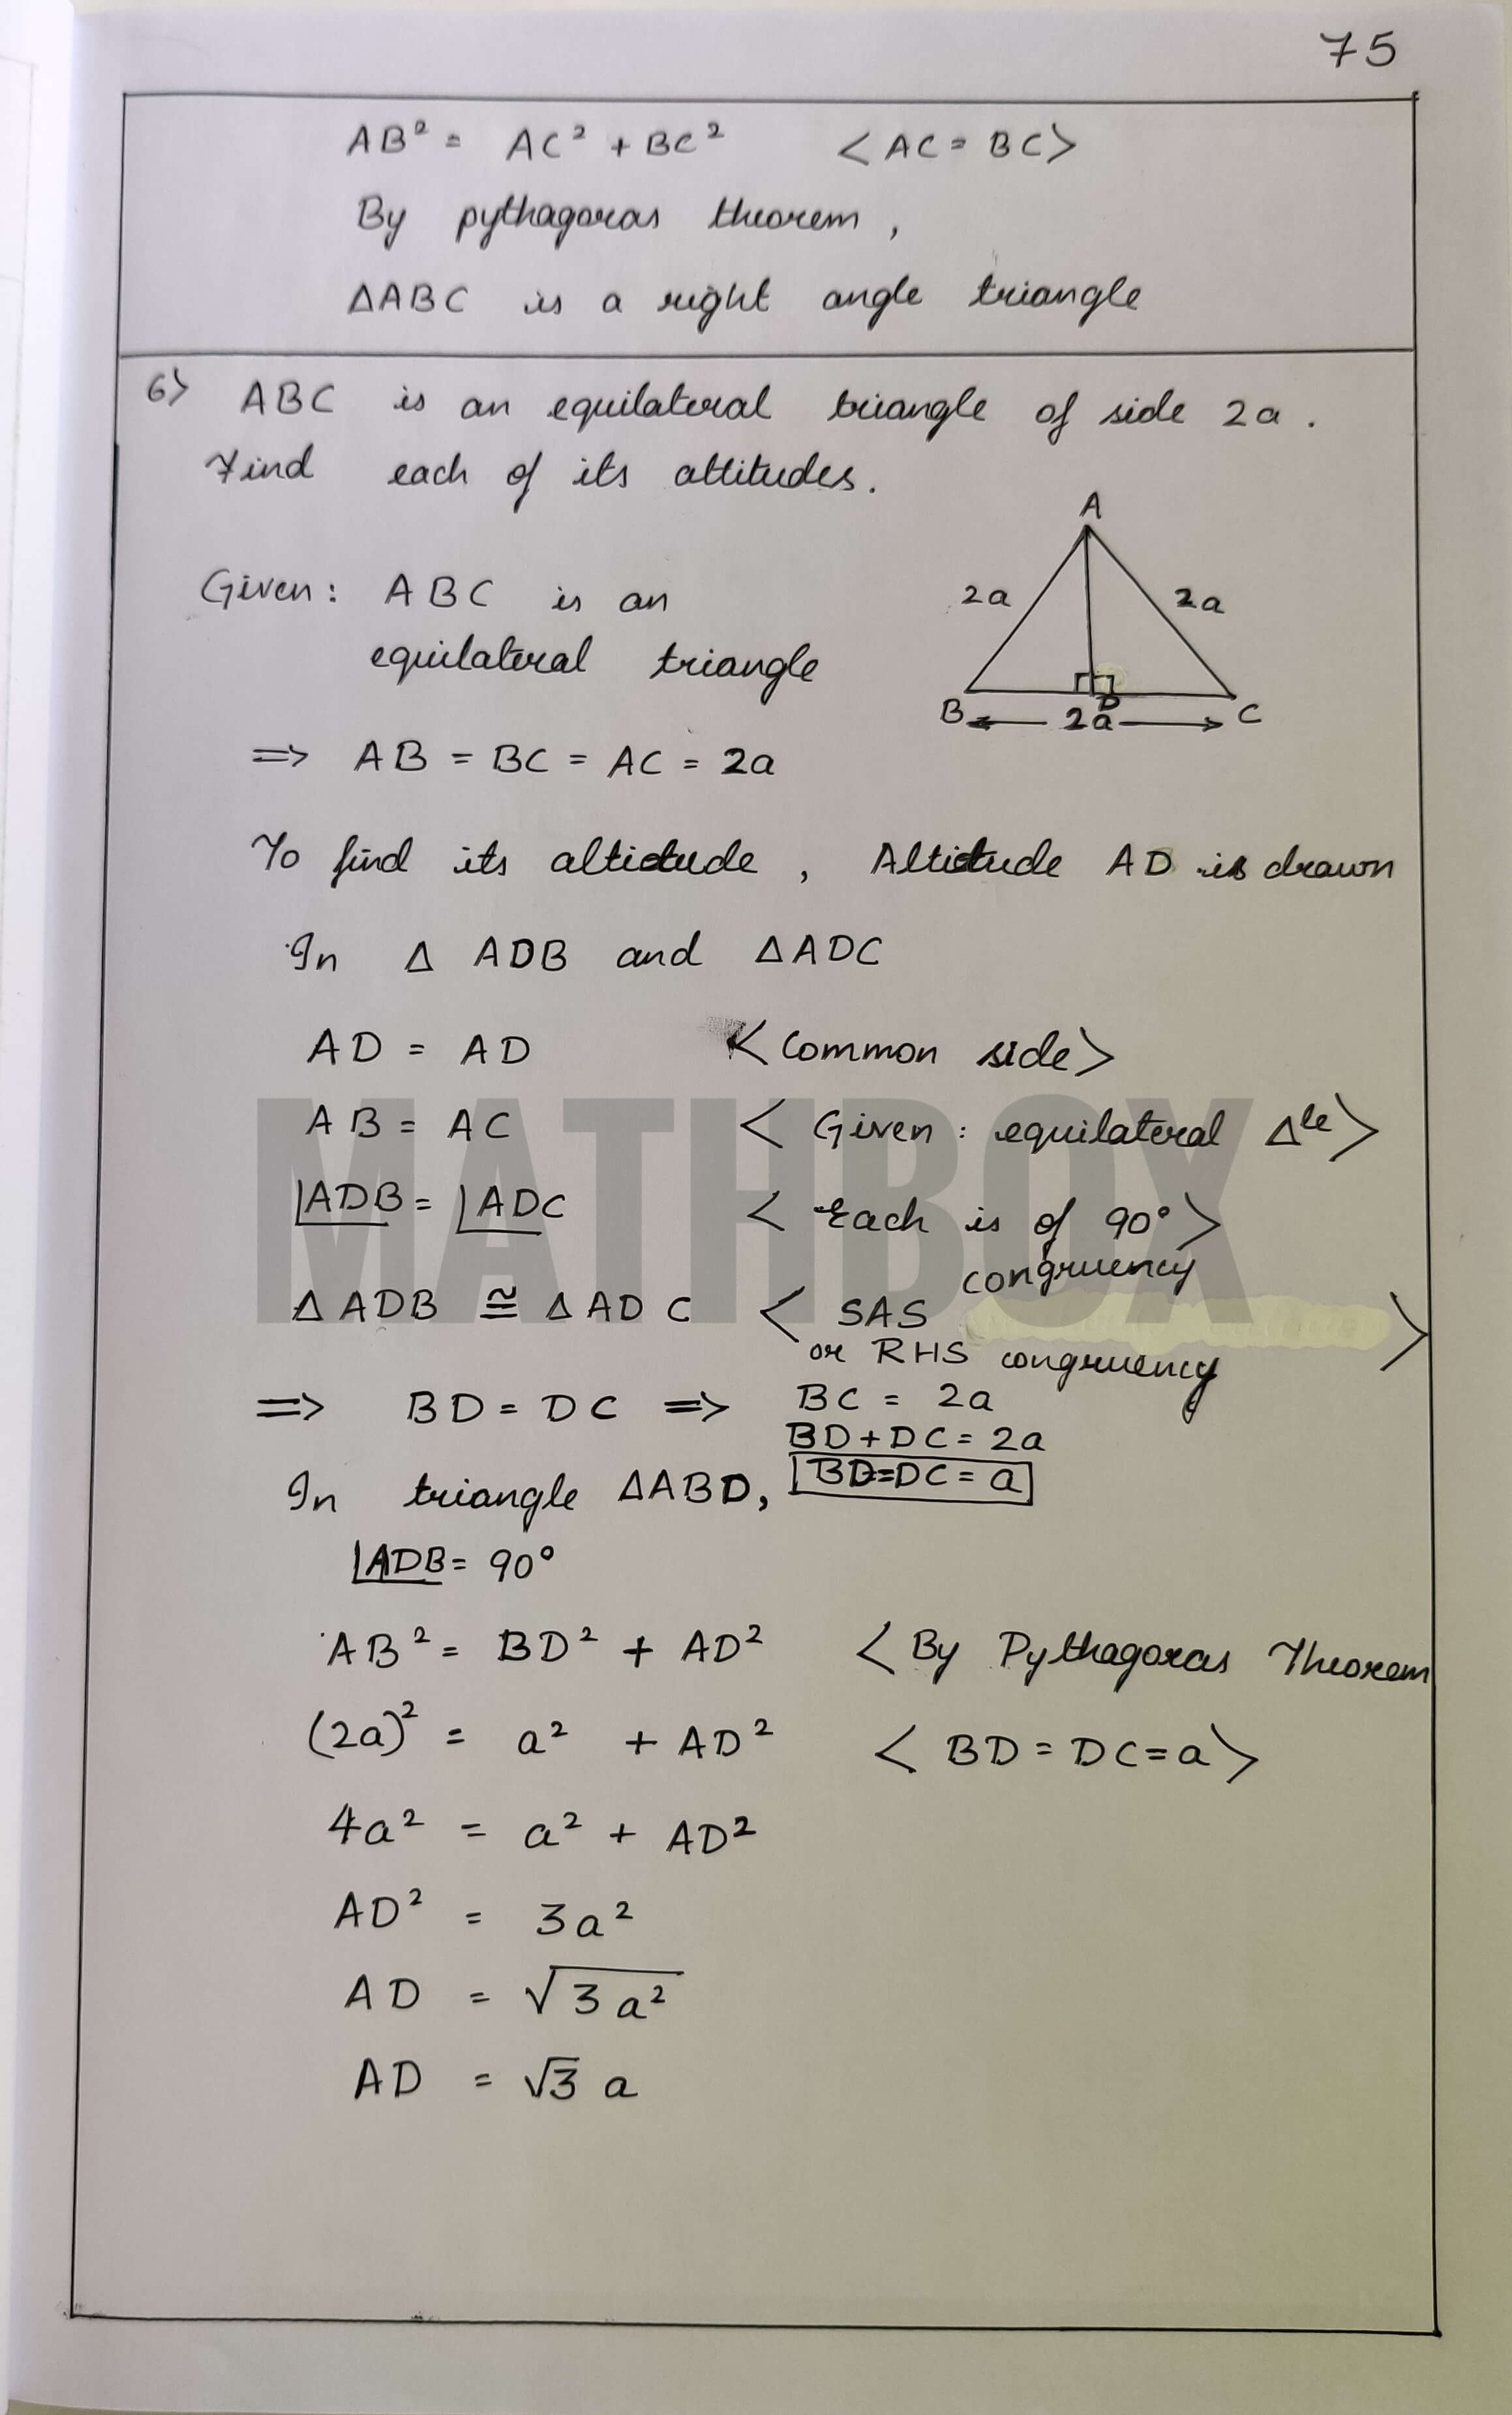 75
AB² = AC² + BC² <AC = BC>
By pythagoras theorem,
∆ABC is a right angle triangle
6> ABC is an equilateral triangle of side 2a.
Find each of its altitudes.
A
2a 2a
D
B 2a C
Given: ABC is an
equilateral triangle
=> AB = BC = AC = 2a
To find its altitude, Altitude AD is drawn
In ∆ ADB and ∆ADC
AD = AD <Common side>
AB = AC <Given: equilateral ∆le>
∠ADB = ∠ADC <Each is of 90°>
∆ ADB ≅ ∆ ADC <SAS congruency
or RHS congruency>
=> BD = DC => BC = 2a
BD + DC = 2a
BD=DC = a
In triangle ∆ABD,
∠ADB = 90°
AB² = BD² + AD² <By Pythagoras Theorem
(2a)² = a² + AD² <BD = DC = a>
4a² = a² + AD²
AD² = 3a²
AD = √3a²
AD = √3 a
MATHBOX